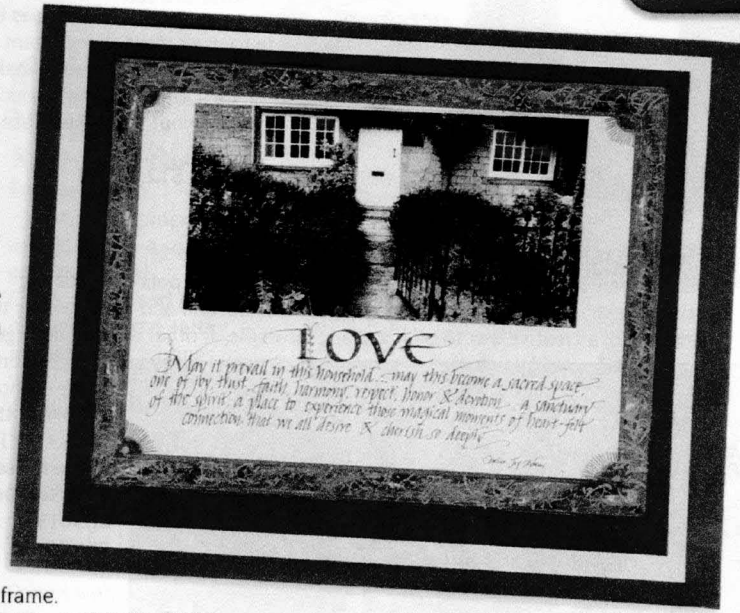 LOVE
May it prevail in this household... may this become a sacred space,
one of joy, trust, faith, harmony, respect, honor & devotion... a sanctuary
of the spirit, a place to experience those magical moments of heart-felt
connection that we all desire & cherish so deeply
frame.